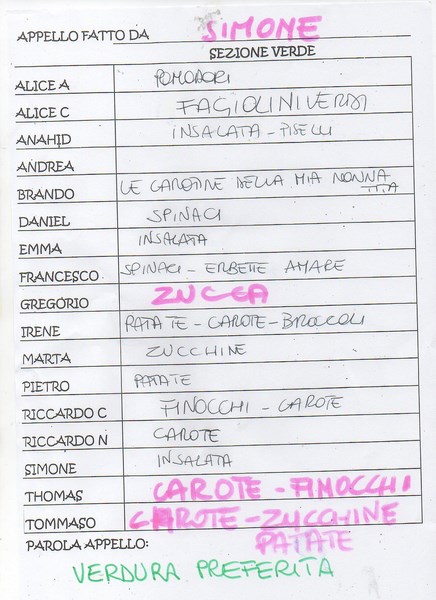 APPELLO FATTO DA SIMONE
SEZIONE VERDE
ALICE A POMODORI
ALICE C FAGIOLINI VERDI
ANAHID INSALATA - PISELLI
ANDREA
BRANDO LE CAROTINE DELLA MIA NONNA
DANIEL SPINACI
EMMA INSALATA
FRANCESCO SPINACI - ERBETTE AMARE
GREGORIO ZUCCA
IRENE PATATE - CAROTE - BROCCOLI
MARTA ZUCCHINE
PIETRO PATATE
RICCARDO C FINOCCHI - CAROTE
RICCARDO N CAROTE
SIMONE INSALATA
THOMAS CAROTE - FINOCCHI
TOMMASO CAROTE - ZUCCHINE
PATATE
PAROLA APPELLO:
VERDURA PREFERITA